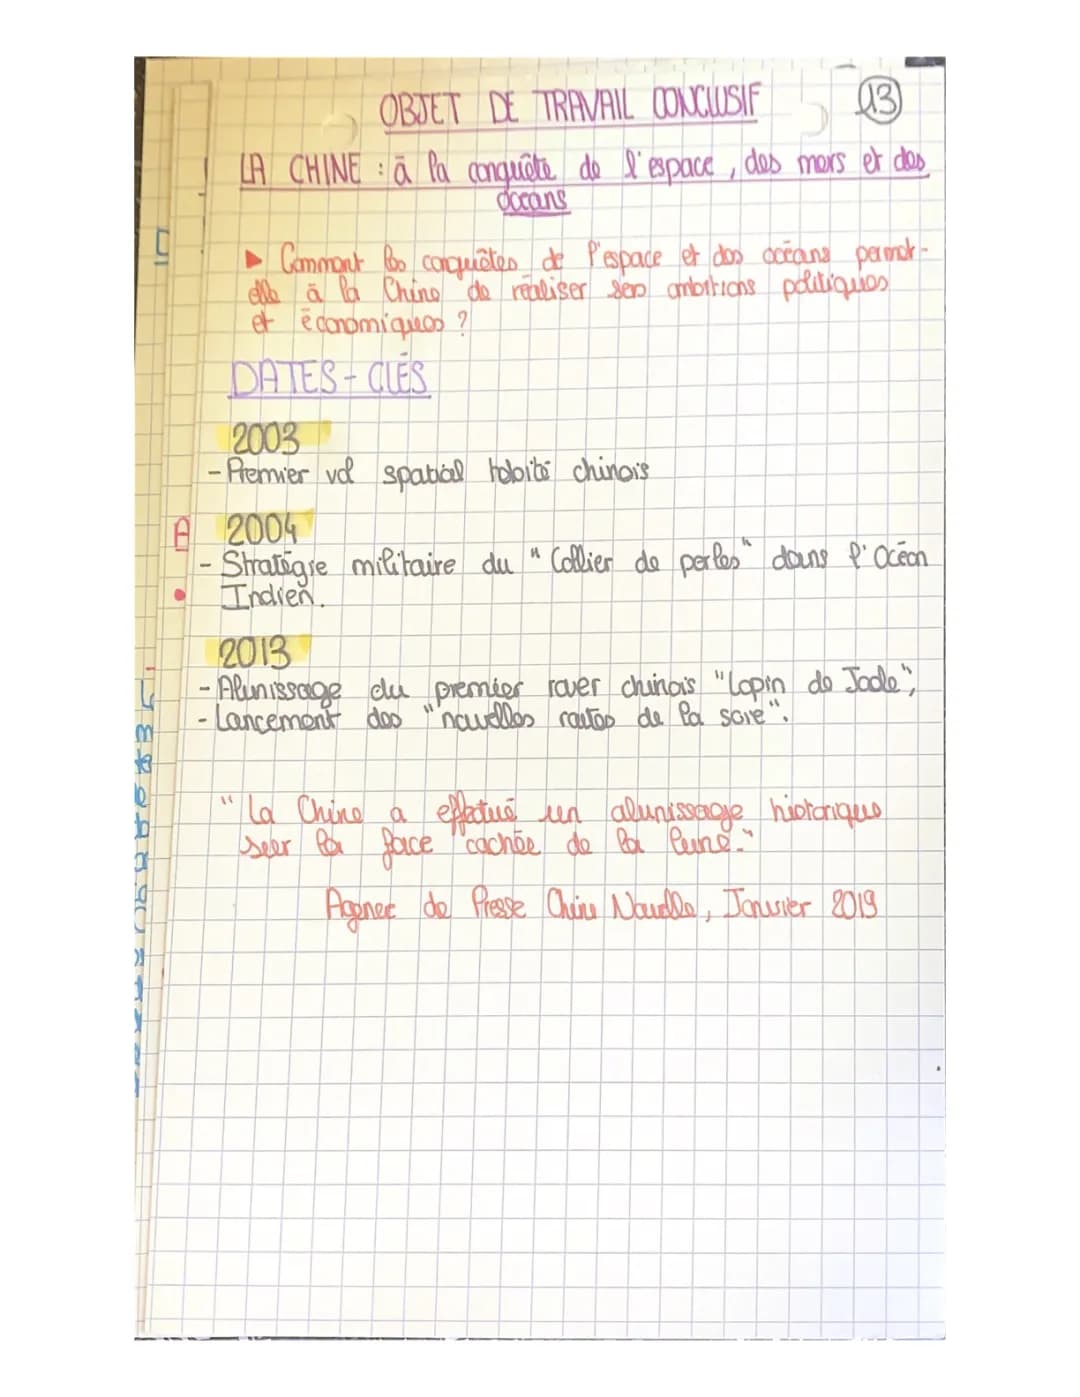 OBJET DE TRAVAIL CONCLUSIF
13
LA CHINE : à la conquête de l'espace, des mers et des
océans
▶ Comment les conquêtes de l'espace et des océans permet-
elle à la Chine de réaliser ses ambitions politiques
et économiques ?
DATES-CLÉS
2003
- Premier vol spatial habité chinois
A
2004
- Stratégie militaire du "Collier de perles" dans l'Océan
Indien.
2013
- Alunissage du premier rover chinois "Lapin de Jade",
- Lancement des "nouvelles routes de la soie".
"La Chine a effectué un alunissage historique
sur la face cachée de la lune."
Agence de Presse Chine Nouvelle, Janvier 2019